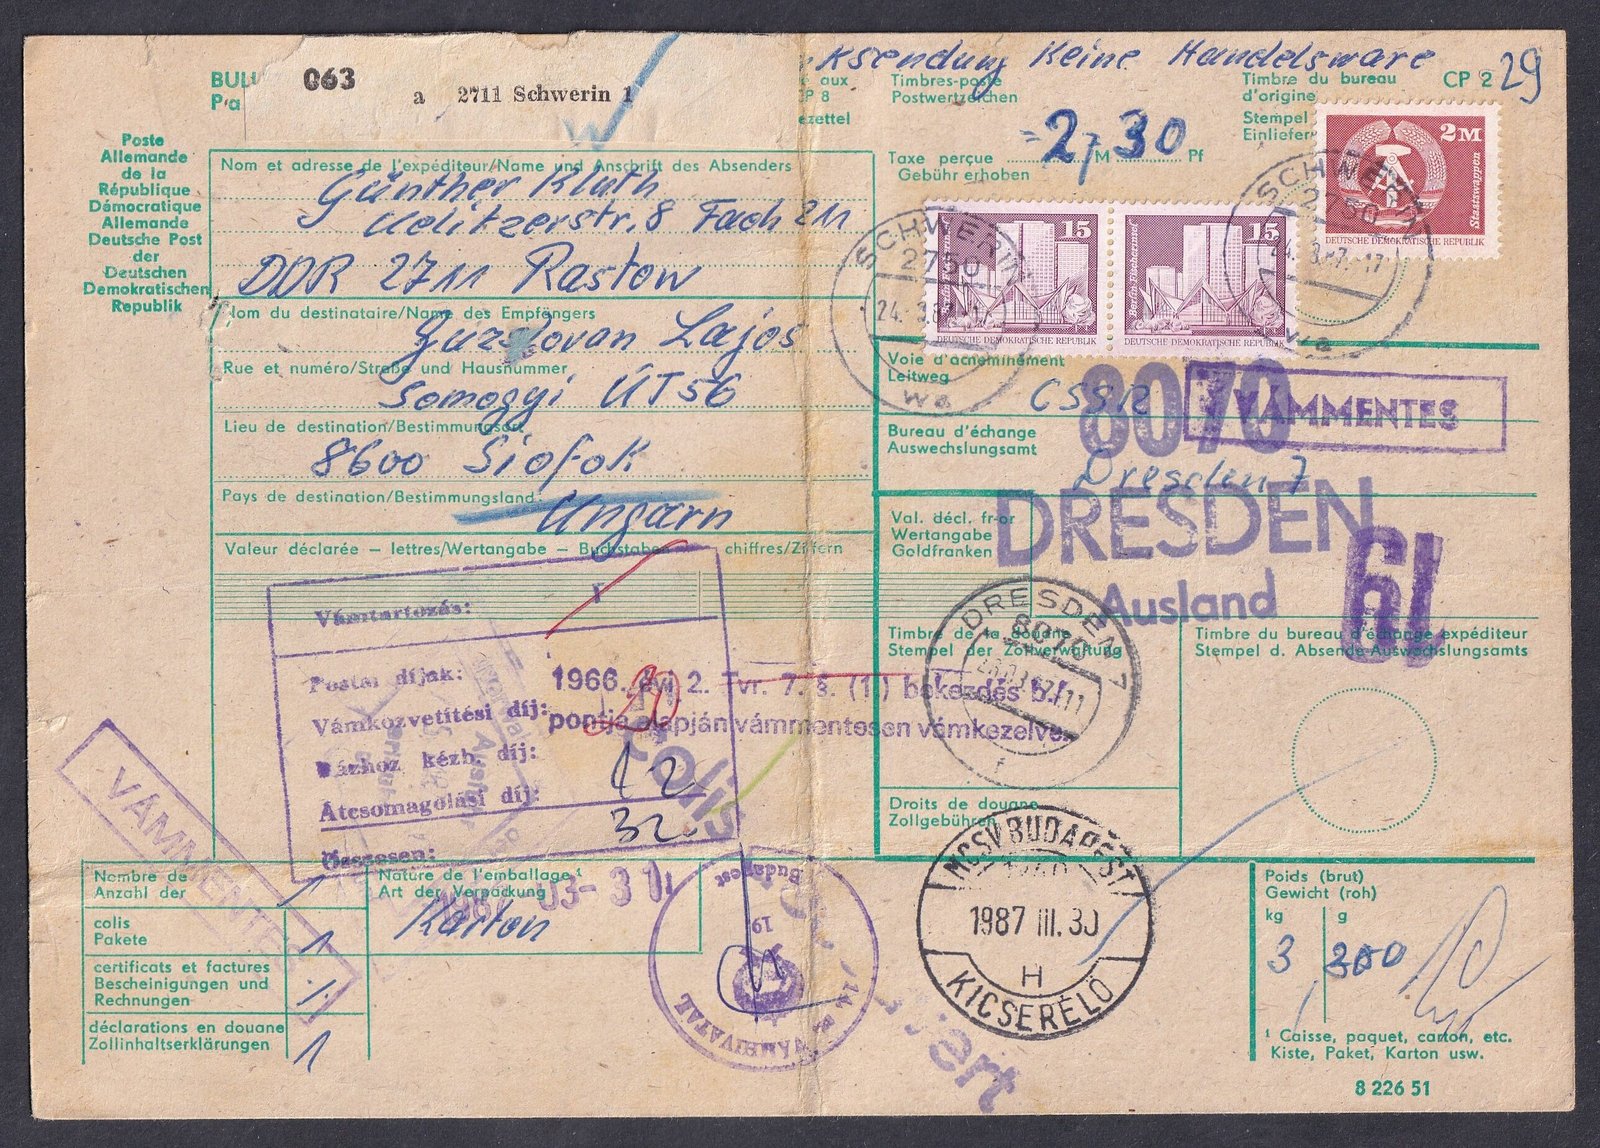 ksendung Keine Handelsware
29
BUL
Pa
063
a 2711 Schwerin 1
aux
P 8
ezettel
Timbres-poste
Postwertzeichen
Timbre du bureau
d'origine
Stempel
Einliefer
CP 2
Taxe perçue M Pf
Gebühr erhoben
2,30
2 M
Staatswappen
DEUTSCHE DEMOKRATISCHE REPUBLIK
15
DEUTSCHE DEMOKRATISCHE REPUBLIK
15
Berlin, Fischerinsel
DEUTSCHE DEMOKRATISCHE REPUBLIK
SCHWERIN
2750
24.-3.87.-17
wa
SCHWERIN
2750
24. 3.87.-17
wa
Poste
Allemande
de la
République
Démocratique
Allemande
Deutsche Post
der
Deutschen
Demokratischen
Republik
Nom et adresse de l'expéditeur/Name und Anschrift des Absenders
Günther Klath
Uelitzerstr. 8 Fach 211
DDR 2711 Rastow
Nom du destinataire/Name des Empfängers
Lajos
Rue et numéro/Straße und Hausnummer
Somogyi ÚT 56
Lieu de destination/Bestimmungsort
8600 Siofok
Pays de destination/Bestimmungsland
Ungarn
Valeur déclarée – lettres/Wertangabe – Buchstaben chiffres/Ziffern
Voie d'acheminement
Leitweg
CSSR
VÁMMENTES
Bureau d'échange
Auswechslungsamt
Dresden 7
8070
DRESDEN
Ausland
61
Val. décl. fr-or
Wertangabe
Goldfranken
Timbre de la douane
Stempel der Zollverwaltung
DRESDEN 7
8070
Timbre du bureau d'échange expéditeur
Stempel d. Absende-Auswechslungsamts
Vámtartozás:
Postai díjak:
Vámközvetítési díj:
Házhoz kézb. díj:
Átcsomagolási díj:
Összesen:
20
12
32
1966. évi 2. Tvr. 7. §. (1) bekezdés b./
pontja alapján vámmentesen vámkezelve.
Colis
VÁMMENTES
Droits de douane
Zollgebühren
MCSV BUDAPEST
1987 III. 30
H
KICSERÉLŐ
Budapest
19
VÁMHIVATAL
1987 03-31
Nombre de
Anzahl der
1
colis
Pakete
1
certificats et factures
Bescheinigungen und
Rechnungen
déclarations en douane
Zollinhaltserklärungen
1
Nature de l'emballage ¹
Art der Verpackung
Karton
Poids (brut)
Gewicht (roh)
kg g
3 300
¹ Caisse, paquet, carton, etc.
Kiste, Paket, Karton usw.
8 226 51